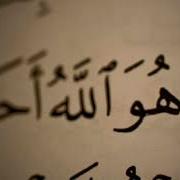 هُوَ ٱللَّهُ أَحَ